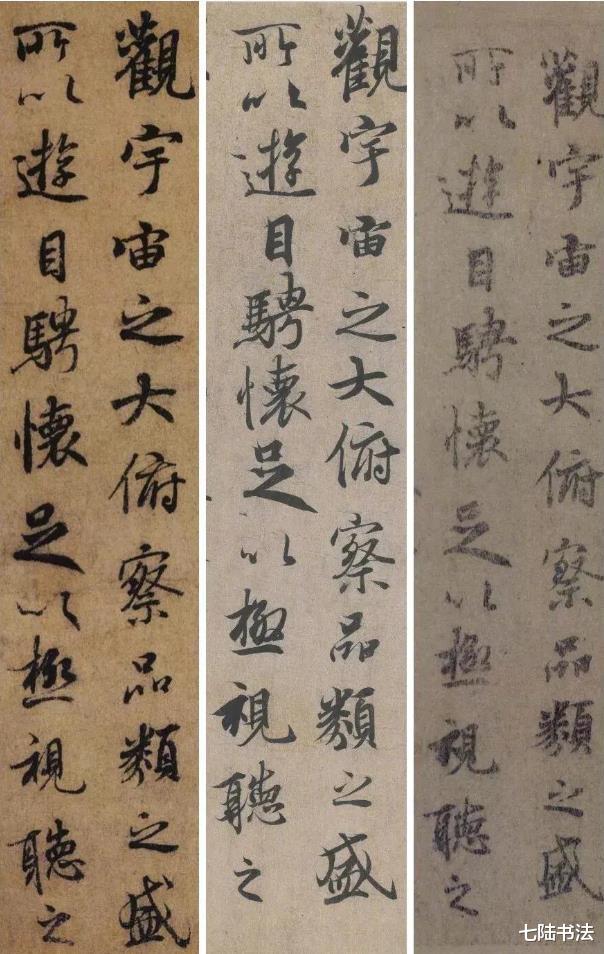 觀宇宙之大俯察品類之盛
所以遊目騁懷足以極視聽之
觀宇宙之大俯察品類之盛
所以遊目騁懷足以極視聽之
觀宇宙之大俯察品類之盛
所以遊目騁懷足以極視聽之
七陆书法